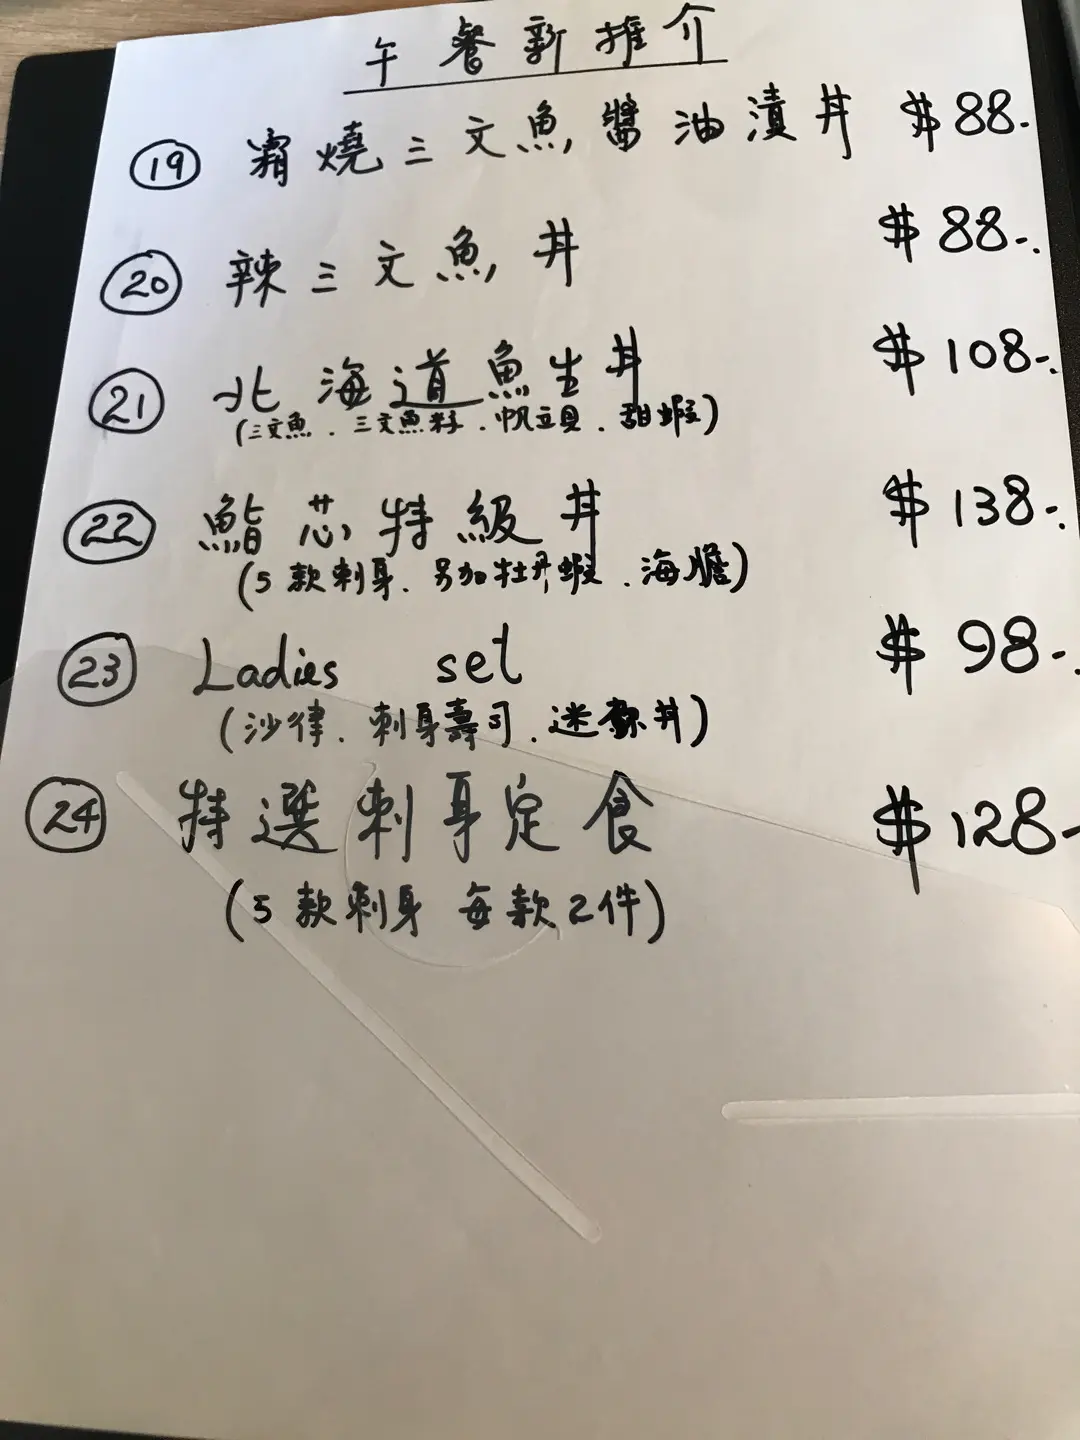 午餐新推介
19 霜燒三文魚醬油漬丼 $88-
20 辣三文魚丼 $88-
21 北海道魚生丼 $108-
(三文魚.三文魚籽.帆立貝.甜蝦)
22 鮨芯特級丼 $138-
(5款刺身.另加牡丹蝦.海膽)
23 Ladies set $98-
(沙律.刺身壽司.迷你丼)
24 特選刺身定食 $128-
(5款刺身 每款2件)